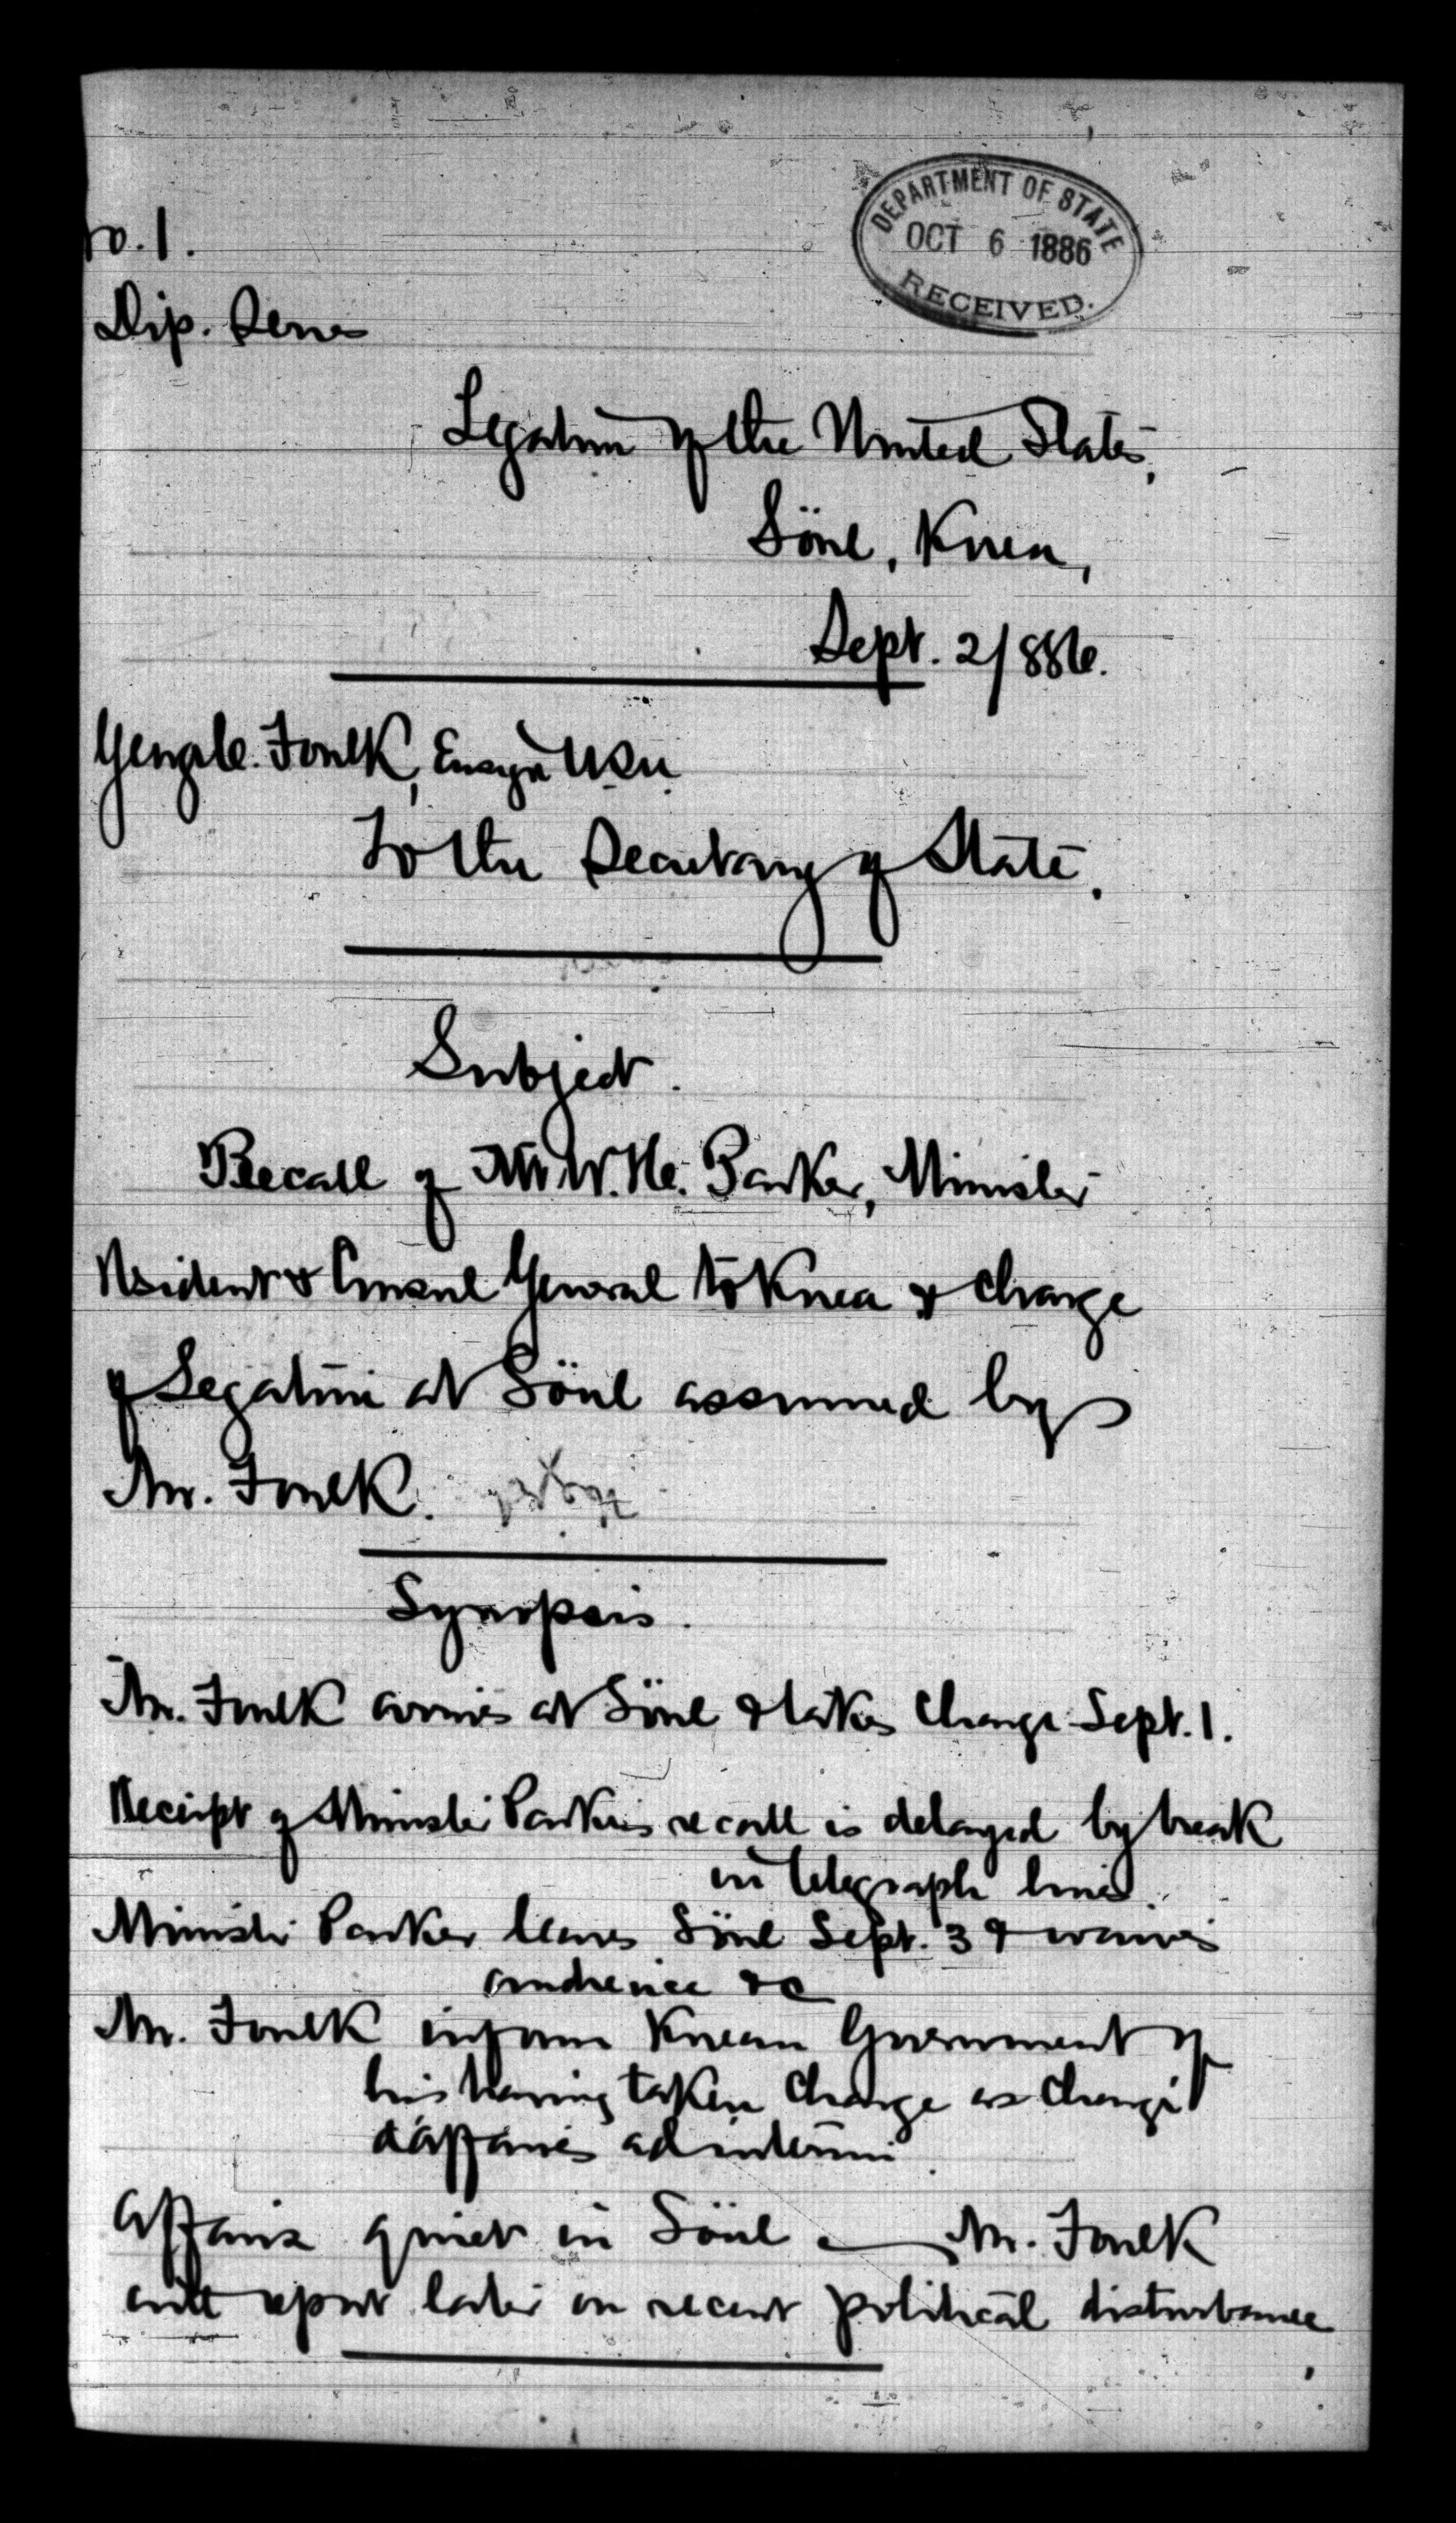 No. 1.
DEPARTMENT OF STATE
OCT 6 1886
RECEIVED.
Dip. Series
Legation of the United States,
Söul, Korea,
Sept. 2/886.
George C. Foulk, Ensign USN
To the Secretary of State.
Subject.
Recall of Mr W. H. Parker, Minister
Resident & Consul General to Korea & charge
of Legation at Söul assumed by
Mr. Foulk.
Synopsis.
Mr. Foulk arrives at Söul & takes charge Sept. 1.
Receipt of Minister Parker's recall is delayed by break
in telegraph lines
Minister Parker leaves Söul Sept. 3 & waives
audience &c
Mr. Foulk informs Korean Government of
his having taken charge as Chargé
d'affaires ad interim.
Affairs quiet in Söul — Mr. Foulk
will report later on recent political disturbance